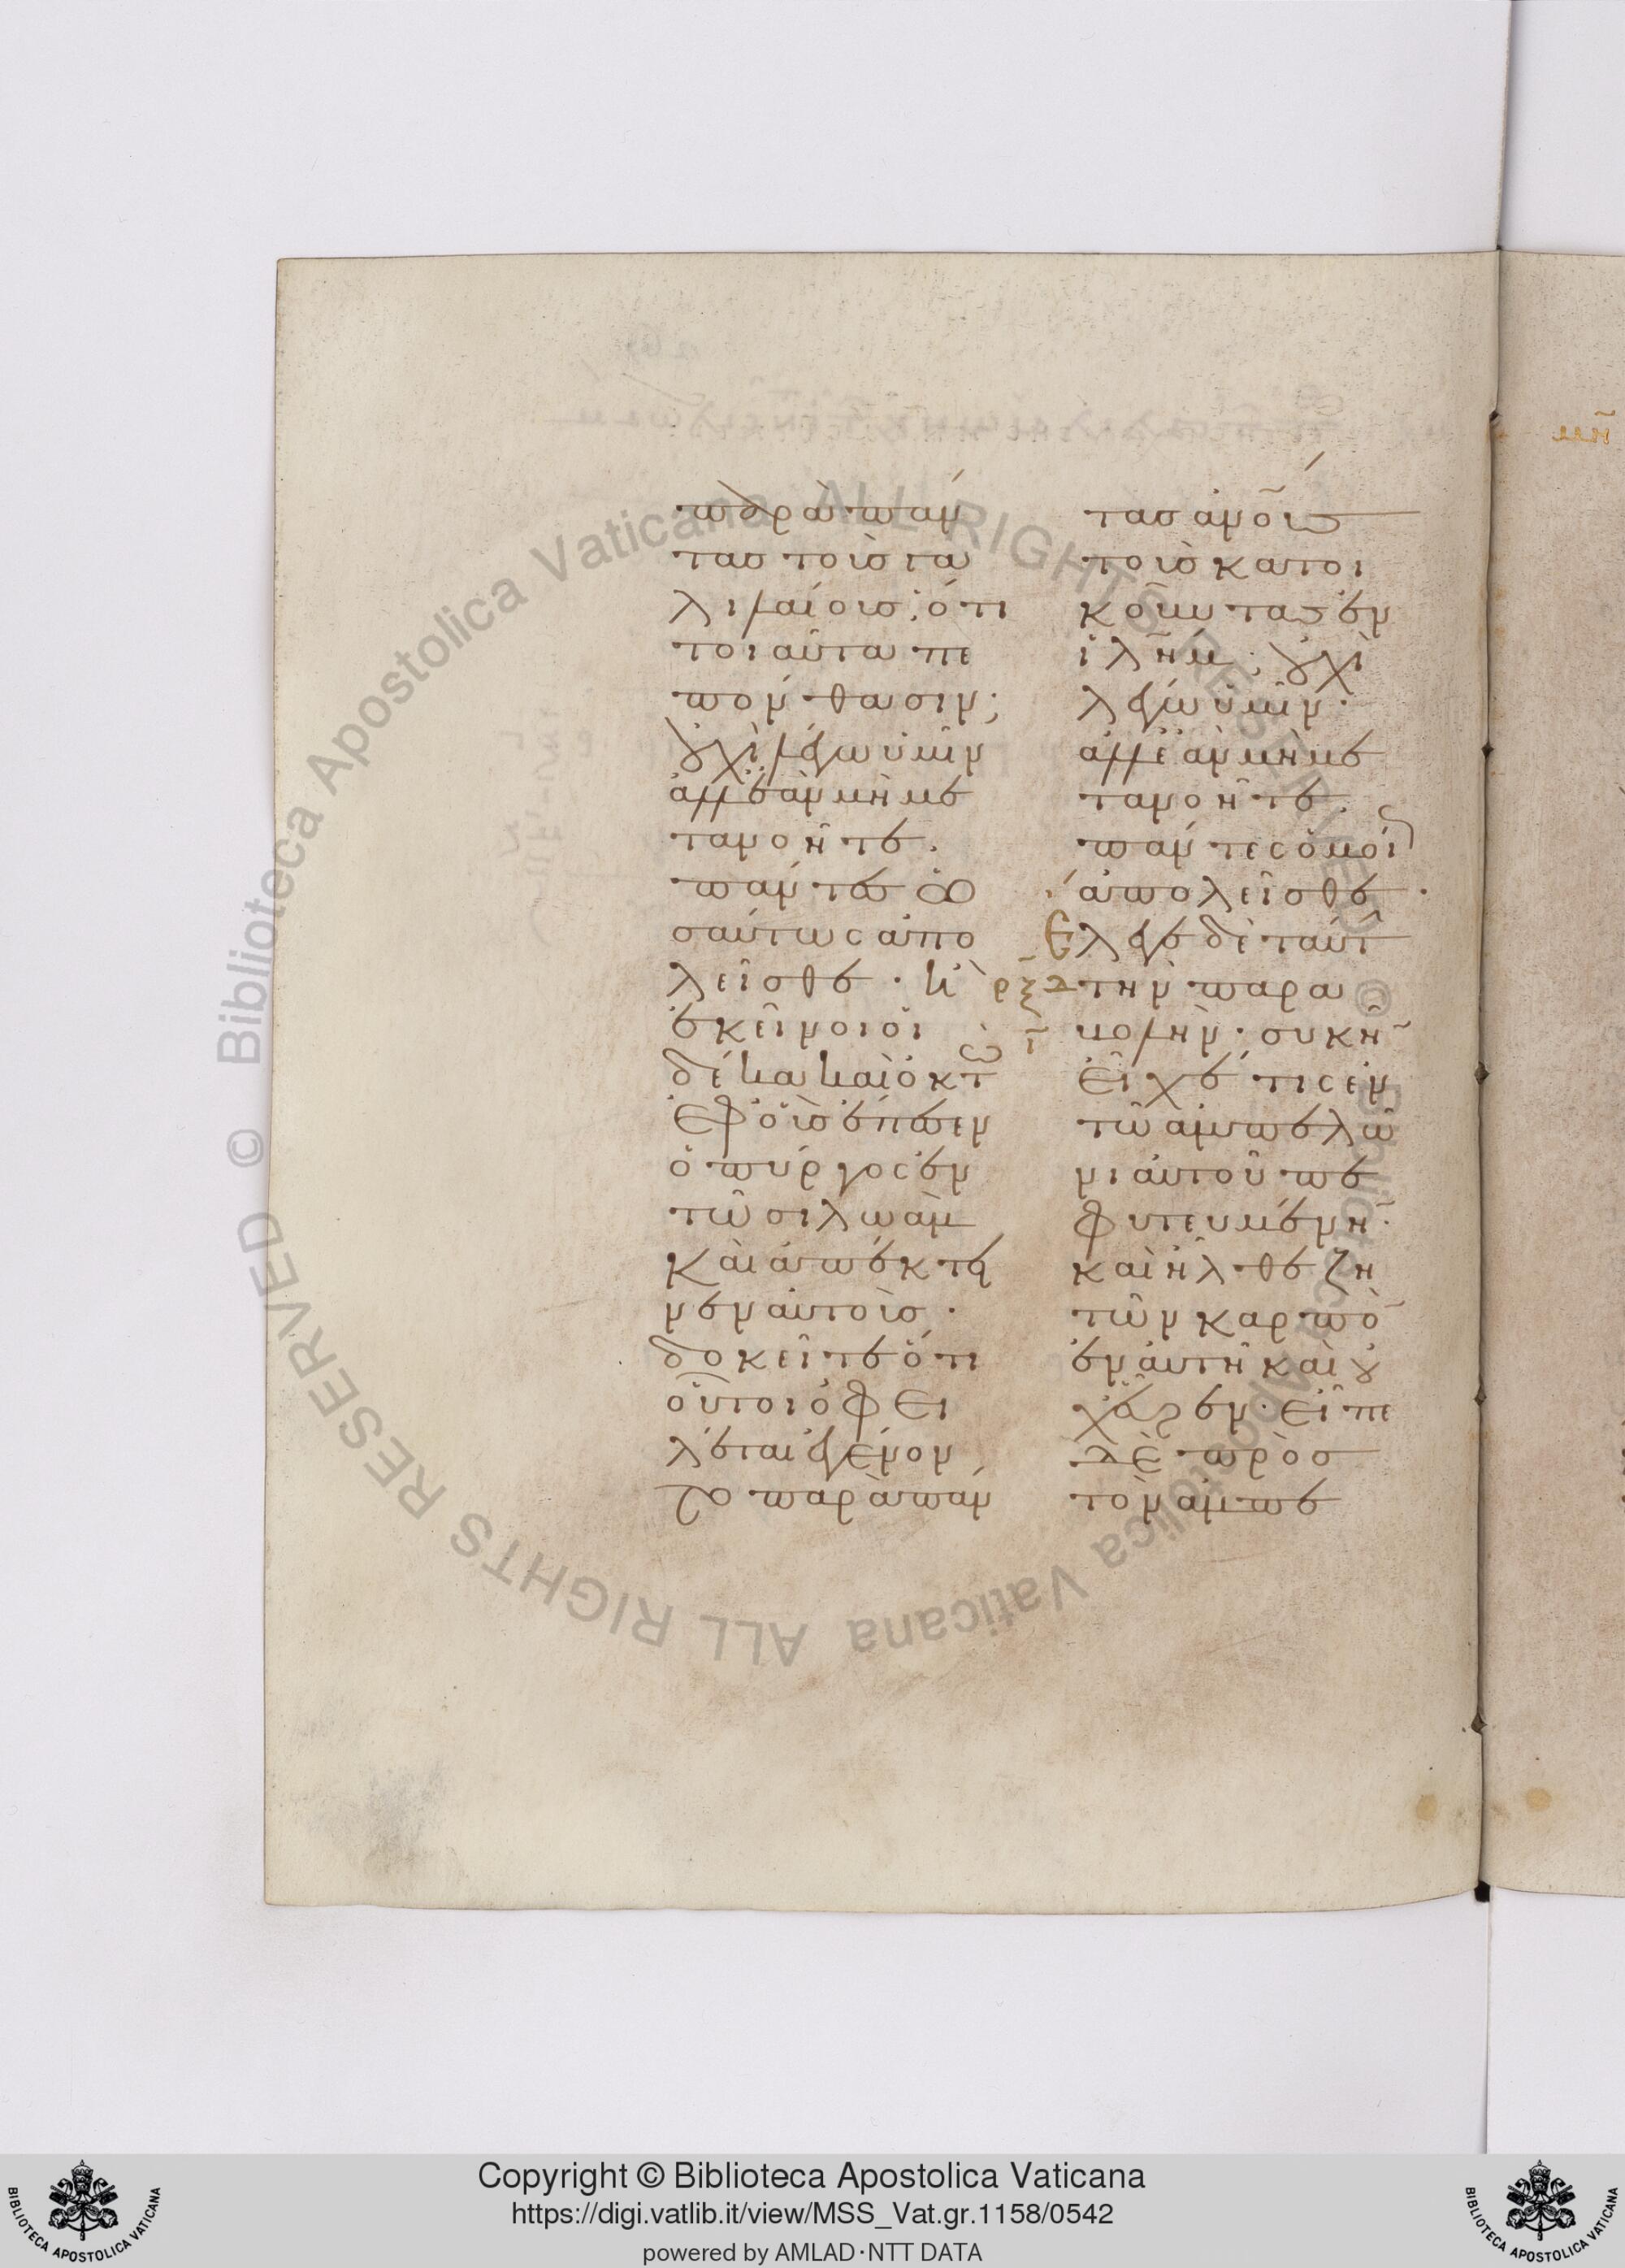 παρὰ πάν
τας τοὺς γα
λιλαίους· ὅτι
τοιαῦτα πε
πόνθασιν;
οὐχὶ λέγω ὑμῖν
ἀλλ' ἐὰν μὴ με
τανοῆτε.
πάντες ὡ
σαύτως ἀπο
λεῖσθε· ἢ
ἐκεῖνοι οἱ
δέκα καὶ ὀκτὼ
ἐφ' οὓς ἔπεσεν
ὁ πύργος ἐν
τῶ σιλωὰμ
καὶ ἀπέκτει
νεν αὐτούς·
δοκεῖτε ὅτι
οὗτοι ὀφει
λέται ἐγένον
το παρὰ πάν
τας ἀν̅ο̅υ̅ς
τοὺς κατοι
κοῦντας ἐν
ἱλῆμ; οὐχὶ
λέγω ὑμῖν·
ἀλλ' ἐὰν μὴ με
τανοῆτε.
πάντες ὁμοί
ἀπολεῖσθε·
ρξδ
Ἔλεγε δὲ ταύτ
ι
τὴν παρα
βολήν· συκῆν
εἶχέ τις ἐν
τῶ ἀμπελῶ
νι αὐτοῦ πε
φυτευμένην·
καὶ ἦλθε ζη
τῶν καρπὸν
ἐν αὐτῆ καὶ οὐ
χ' εὗρεν· εἶπε
δὲ πρὸς
τὸν ἀμπε
Copyright © Biblioteca Apostolica Vaticana
https://digi.vatlib.it/view/MSS_Vat.gr.1158/0542
powered by AMLAD·NTT DATA
BIBLIOTECA APOSTOLICA VATICANA
BIBLIOTECA APOSTOLICA VATICANA
© Biblioteca Apostolica Vaticana ALL RIGHTS RESERVED
© Biblioteca Apostolica Vaticana ALL RIGHTS RESERVED